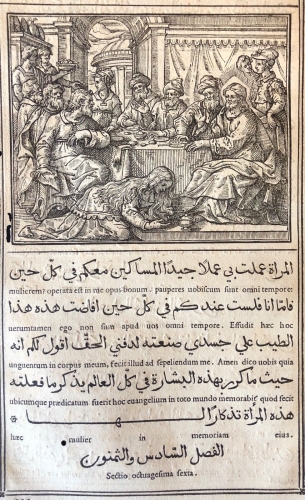 المرأة عملت بي عملا جيدا المساكين معكم في كل حين
mulierem? operata est in me opus bonum. pauperes uobiscum sunt omni tempore:
فاما انا فلست عندكم في كل حين افاضت هذه هذا
ueruntamen ego non sum apud uos omni tempore. Effudit hæc hoc
الطيب علي جسدي صنعته لدفني الحق اقول لكم انه
unguentum in corpus meum, fecit illud ad sepeliendum me. Amen dico uobis quia
حيث ما كرر بهذه البشارة في كل العالم يذكر ما فعلته
ubicumque prædicatum fuerit hoc euangelium in toto mundo memorabit quod fecit
هذه المرأة تذكارا لها
hæc mulier in memoriam eius.
الفصل السادس والثمنون
Sectio octuagesima sexta.